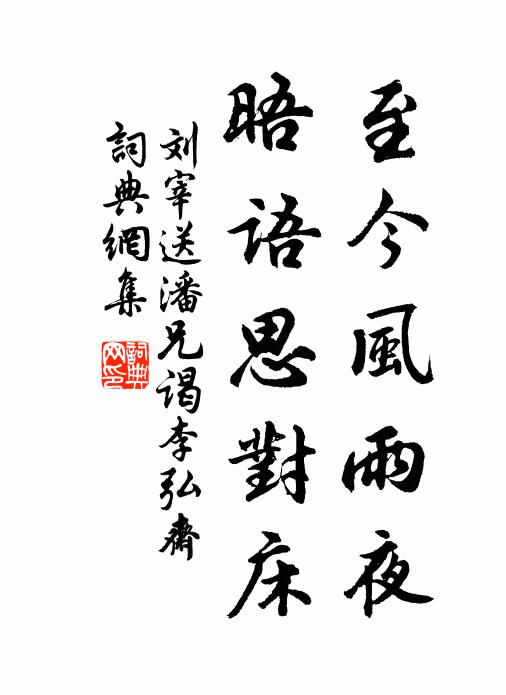 至今風雨夜
晤語思對床
刘宰送潘兄谒李弘齋
詞典網集
詞典网印